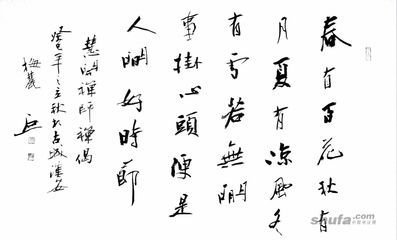 春有百花秋有
月夏有涼風冬
有雪若無閒
事掛心頭便是
人間好時節
慧開禪師禪偈
年之立秋於古城
梅麓
shufa.com